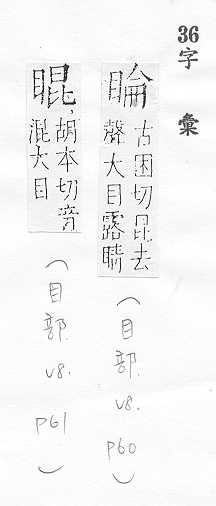 36字彙
睔 古困切昆去
聲大目露睛
(目部.v8.p60)
睴,胡本切音
混大目
(目部.v8.p61)